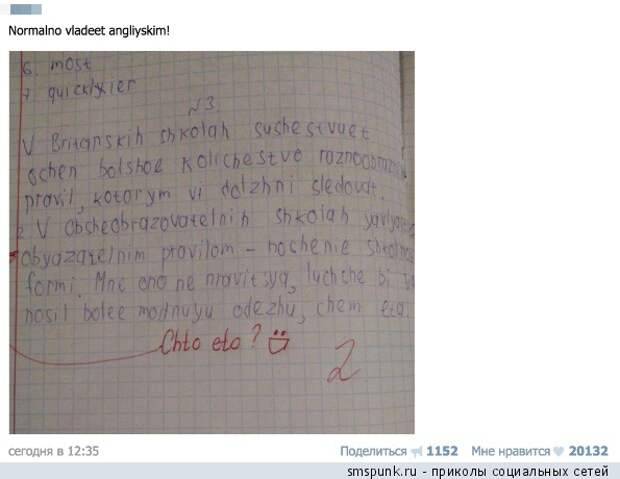 Normalno vladeet angliyskim!
6. most
7. quicklyier
№3
V Britanskih shkolah sushestvuet
ochen bolshoe kolichestvo
pravil, kotorym vi dolzhni sledovat.
2 V obsheobrazovatelnih shkolah
obyazatelnim pravilom - noshenie
formi. Mne ono ne nravitsya, luchche bi
nosil bolee modnuyu odezhu, chem eta.
Chto eto?
2
сегодня в 12:35
Поделиться 1152 Мне нравится 20132
smspunk.ru - приколы социальных сетей